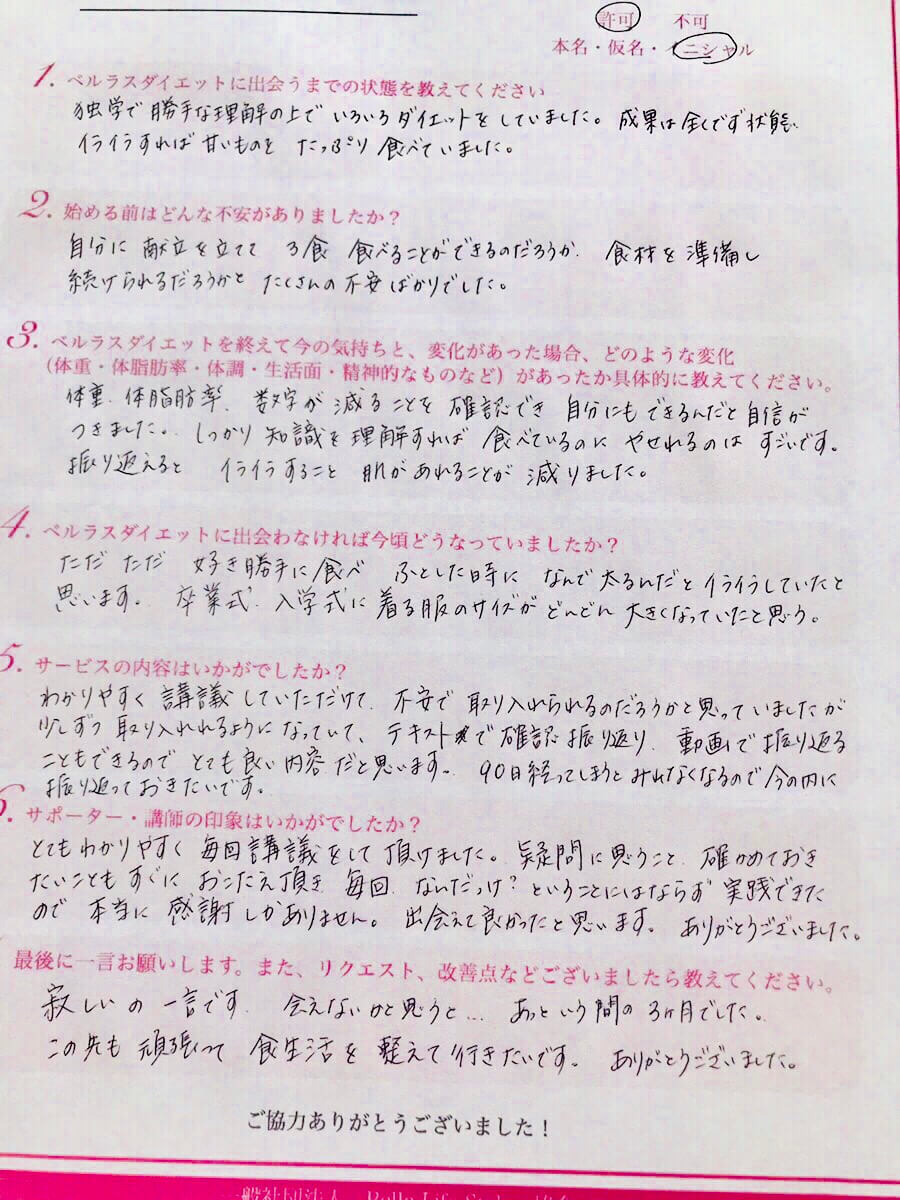 許可 不可
本名・仮名・イニシャル
1. ベルラスダイエットに出会うまでの状態を教えてください
独学で勝手な理解の上で いろいろダイエットをしていました。成果は全くでず状態、
イライラすれば甘いものを たっぷり食べていました。
2. 始める前はどんな不安がありましたか？
自分に 献立を立てて 3食 食べることができるのだろうか. 食材を準備し
続けられるだろうかと たくさんの不安ばかりでした。
3. ベルラスダイエットを終えて今の気持ちと、変化があった場合、どのような変化
（体重・体脂肪率・体調・生活面・精神的なものなど）があったか具体的に教えてください。
体重. 体脂肪率. 数字が減ることを確認でき 自分にもできるんだと自信が
つきました。. しっかり知識を理解すれば 食べているのに やせれるのは すごいです。
振り返えると イライラすること 肌があれることが 減りました。
4. ベルラスダイエットに出会わなければ今頃どうなっていましたか？
ただ ただ 好き勝手に食べ ふとした時に なんで太るんだとイライラしていたと
思います。 卒業式. 入学式に着る服のサイズが どんどん大きくなっていたと思う。
5. サービスの内容はいかがでしたか？
わかりやすく 講義していただけて. 不安で取り入れられるのだろうかと思っていましたが
少しずつ取り入れれるようになっていて、テキストで確認振り返り. 動画で振り返る
こともできるので とても良い内容だと思います。 90日経ってしまうとみれなくなるので今の内に
振り返っておきたいです。
6. サポーター・講師の印象はいかがでしたか？
とてもわかりやすく毎回講義をして頂けました。疑問に思うこと. 確かめておき
たいことも すぐに おこたえ頂き 毎回. なんだっけ？ということにはならず実践できた
ので 本当に 感謝しかありません。出会えて良かったと思います。 ありがとうございました。
最後に一言お願いします。また、リクエスト、改善点などございましたら教えてください。
寂しいの一言です. 会えないかと思うと… あっという間の3ヶ月でした。
この先も頑張って 食生活を整えて行きたいです。 ありがとうございました。
ご協力ありがとうございました！
一般社団法人